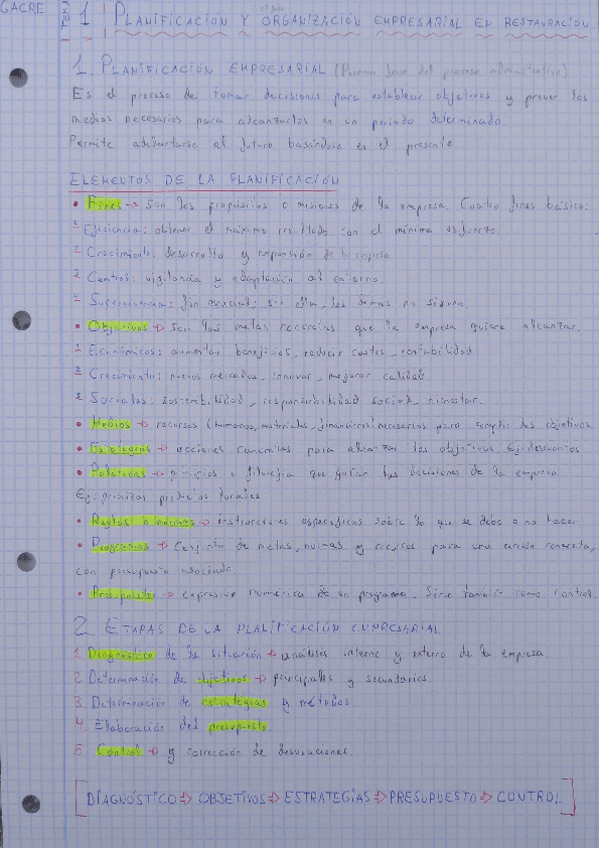 GACRE
1 PLANIFICACIÓN Y ORGANIZACIÓN EMPRESARIAL EN RESTAURACIÓN
1. PLANIFICACIÓN EMPRESARIAL (Primera fase del proceso administrativo)
Es el proceso de tomar decisiones para establecer objetivos y prever los
medios necesarios para alcanzarlos en un periodo determinado.
Permite adelantarse al futuro basándose en el presente.
ELEMENTOS DE LA PLANIFICACIÓN
• Fines → son los propósitos o misiones de la empresa. Cuatro fines básicos:
1 Eficiencia: obtener el máximo resultado con el mínimo esfuerzo
2 Crecimiento: desarrollo y expansión de la empresa
3 Control: vigilancia y adaptación al entorno.
4 Supervivencia: fin esencial; sin ella, los demás no sirven.
• Objetivos → son las metas concretas que la empresa quiere alcanzar.
1 Económicos: aumentar beneficios, reducir costes, rentabilidad.
2 Crecimiento: nuevos mercados, innovar, mejorar calidad.
3 Sociales: sostenibilidad, responsabilidad social, bienestar.
• Medios → recursos (humanos, materiales, financieros) necesarios para cumplir los objetivos.
• Estrategias → acciones concretas para alcanzar los objetivos. Ej: descuentos
• Políticas → principios o filosofía que guían las decisiones de la empresa
Ej: priorizar productos locales
• Reglas o normas → instrucciones específicas sobre lo que se debe o no hacer
• Programas → Conjunto de metas, normas y recursos para una acción concreta,
con presupuesto asociado.
• Presupuestos → expresión numérica de un programa. Sirve también como control.
2. ETAPAS DE LA PLANIFICACIÓN EMPRESARIAL
1. Diagnóstico de la situación → análisis interno y externo de la empresa
2. Determinación de objetivos → principales y secundarios.
3. Determinación de estrategias y métodos
4. Elaboración del presupuesto.
5. Control → y corrección de desviaciones
[DIAGNÓSTICO → OBJETIVOS → ESTRATEGIAS → PRESUPUESTO → CONTROL]